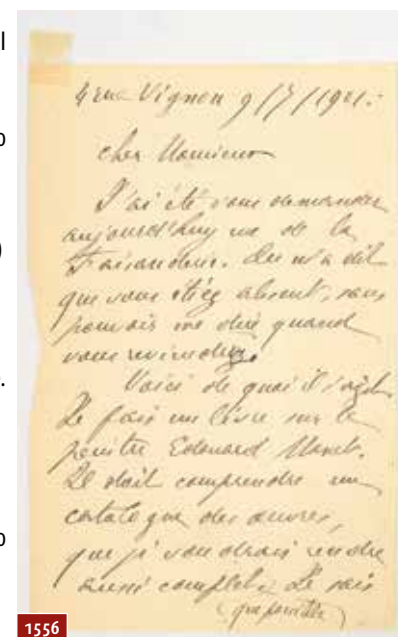 4 rue Vignon 9/7/1901.
cher Monsieur
J'ai été vous demander
aujourd'huy rue de la
Faisanderie. On m'a dit
que vous étiez absent, sans
pouvoir me dire quand
vous reviendrez.
Voici de quoi il s'agit.
Je fais un livre sur le
peintre Edouard Manet.
Il doit comprendre un
catalogue des œuvres,
que je voudrais rendre
aussi complet. Je sais
que
1556